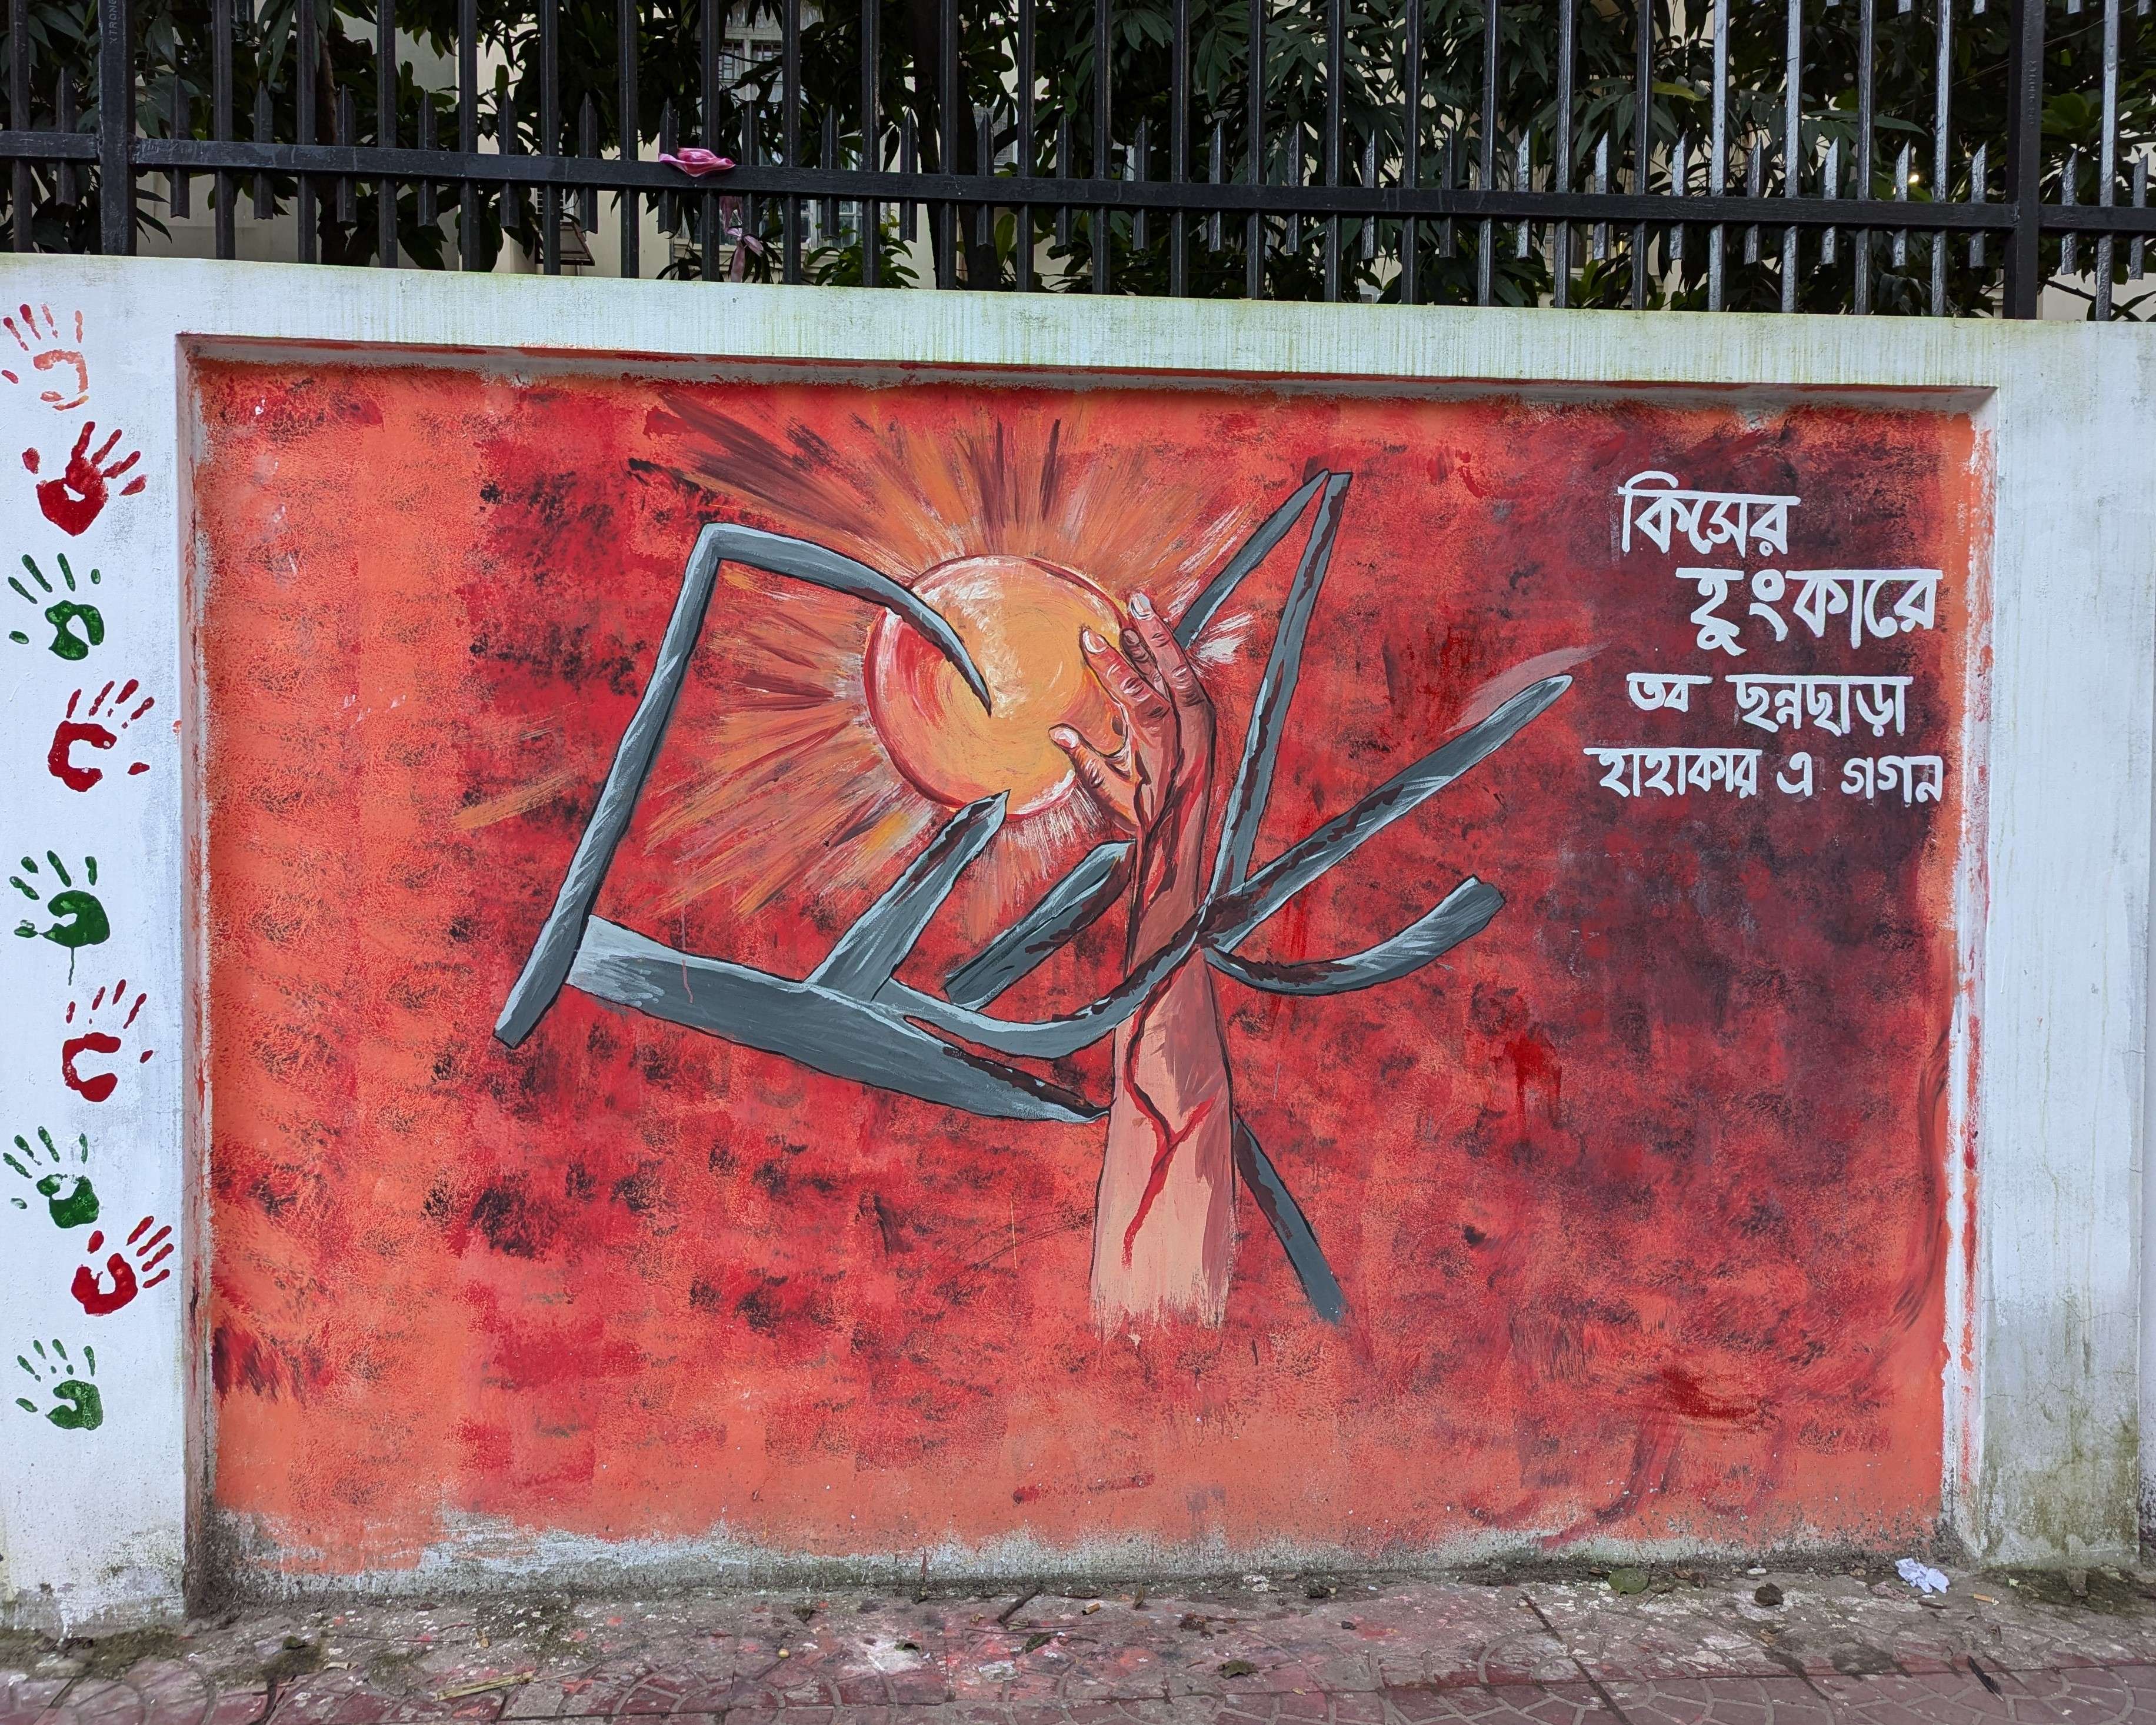 কিসের
হুংকারে
তব ছন্নছাড়া
হাহাকার এ গগন